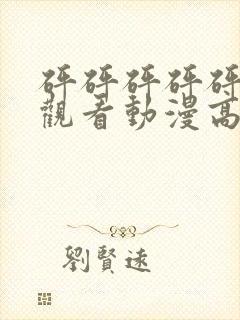 砰砰砰砰砰
觀看動漫高
劉賢遠